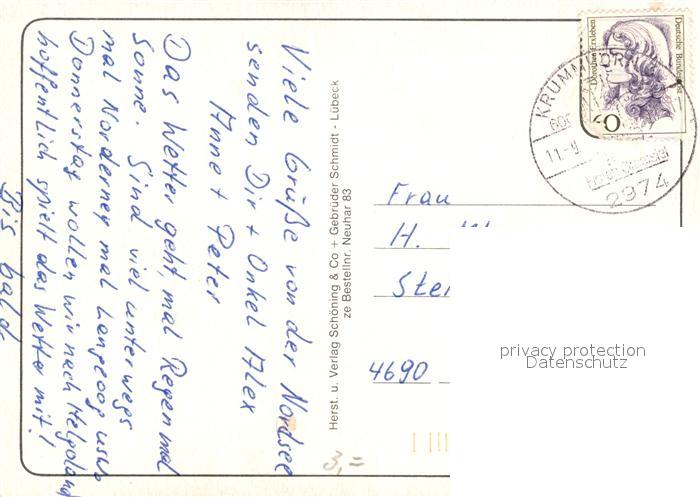 Viele Grüße von der Nordsee
senden Dir + Onkel Alex
Anne + Peter
Das Wetter geht, mal Regen mal
Sonne. Sind viel unterwegs
mal Norderney mal Langeoog usw
Donnerstag wollen wir nach Helgoland
hoffentlich spielt das Wetter mit!
Bis bald
Herst. u. Verlag Schöning & Co + Gebrüder Schmidt - Lübeck
ze Bestellnr. Neuhar 83
Deutsche Bundespost
Dorothea Erxleben
KRUMMHÖRN
2974
Frau
H.
4690
3,=
privacy protection
Datenschutz